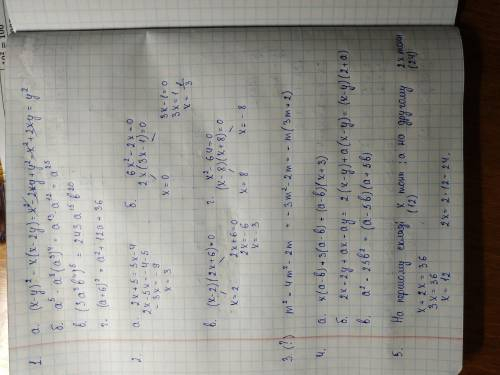 10² = 100
1. а. (x-y)² - x(x-2y) = x² - 2xy + y² - x² + 2xy = y²
б. a⁵ · a⁸ (a³)⁴ = a¹³ · a¹² = a²⁵
в. (3a³b⁴)⁵ = 243 a¹⁵ b²⁰
г. (a+6)² = a² + 12a + 36
2. а. 2x+5=5x-4
2x-5x=-4-5
-3x=-9
x=3
б. 6x² - 2x = 0
2x(3x-1)=0
x=0
3x-1=0
3x=1
x=1/3
в. (x-2)(2x+6)=0
x=2
2x+6=0
2x=-6
x=-3
г. x²-64=0
(x-8)(x+8)=0
x=8
x=-8
3. (?) m² - 4m² - 2m = -3m² - 2m = -m(3m+2)
4. а. x(a-b)+3(a-b) = (a-b)(x+3)
б. 2x-2y+ax-ay = 2(x-y)+a(x-y)=(x-y)(2+a)
в. a² - 25b² = (a-5b)(a+5b)
5. На першому складі x тонн; а на другому 2x тонн
(12) (24)
x+2x=36
3x=36
x=12
2x = 2·12=24.